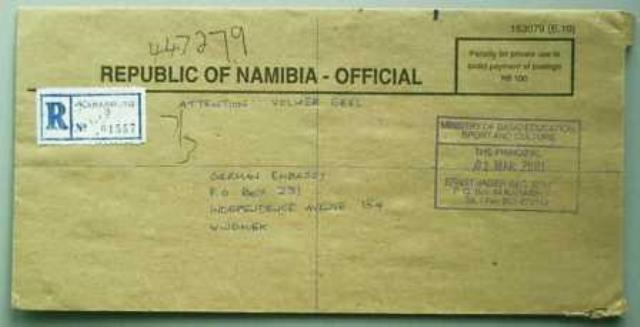 447279
153079 (E.10)
Penalty for private use to
avoid payment of postage
R8 100
REPUBLIC OF NAMIBIA - OFFICIAL
ATTENTION VOLKER
R
No 01557
GERMAN EMBASSY
P.O BOX 231
INDEPENDENCE AVENUE 154
WINDHOEK
MINISTRY OF BASIC EDUCATION
SPORT AND CULTURE
THE PRINCIPAL
02 MAR 2001